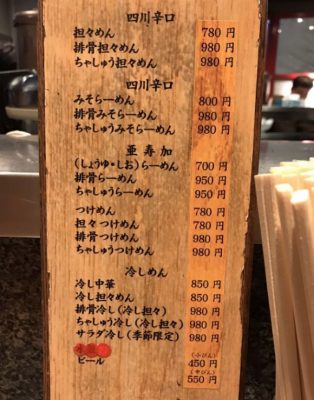 四川辛口
担々めん 780円
排骨担々めん 980円
ちゃしゅう担々めん 980円
四川辛口
みそらーめん 800円
排骨みそらーめん 980円
ちゃしゅうみそらーめん 980円
亜寿加
(しょうゆ・しお)らーめん 700円
排骨らーめん 950円
ちゃしゅうらーめん 950円
つけめん 780円
担々つけめん 780円
排骨つけめん 980円
ちゃしゅうつけめん 980円
冷しめん
冷し中華 850円
冷し担々めん 850円
排骨冷し(冷し担々) 980円
ちゃしゅう冷し(冷し担々) 980円
サラダ冷し(季節限定) 980円
(小びん)
ビール 450円
(中びん)
550円